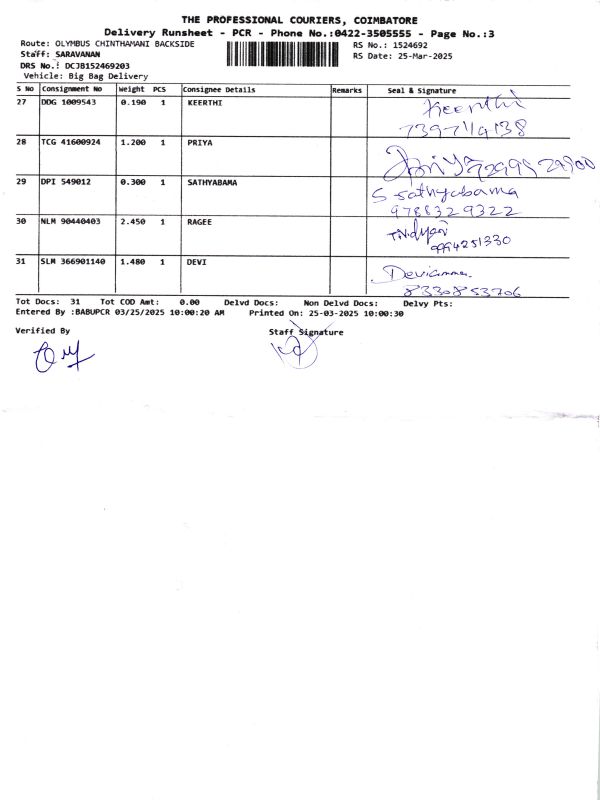 THE PROFESSIONAL COURIERS, COIMBATORE
Delivery Runsheet - PCR - Phone No.:0422-3505555 - Page No.:3
Route: OLYMBUS CHINTHAMANI BACKSIDE
RS No.: 1524692
Staff: SARAVANAN
RS Date: 25-Mar-2025
DRS No.: DCJB152469203
Vehicle: Big Bag Delivery
S No Consignment No Weight PCS Consignee Details Remarks Seal & Signature
27 DDG 1009543 0.190 1 KEERTHI Keerthi
7397114138
28 TCG 41600924 1.200 1 PRIYA
29 DPI 549012 0.300 1 SATHYABAMA S sathyabama
9788329322
30 NLM 90440403 2.450 1 RAGEE
9994251330
31 SLM 366901140 1.480 1 DEVI
8330853706
Tot Docs: 31 Tot COD Amt: 0.00 Delvd Docs: Non Delvd Docs: Delvy Pts:
Entered By :BABUPCR 03/25/2025 10:00:20 AM Printed On: 25-03-2025 10:00:30
Verified By Staff Signature